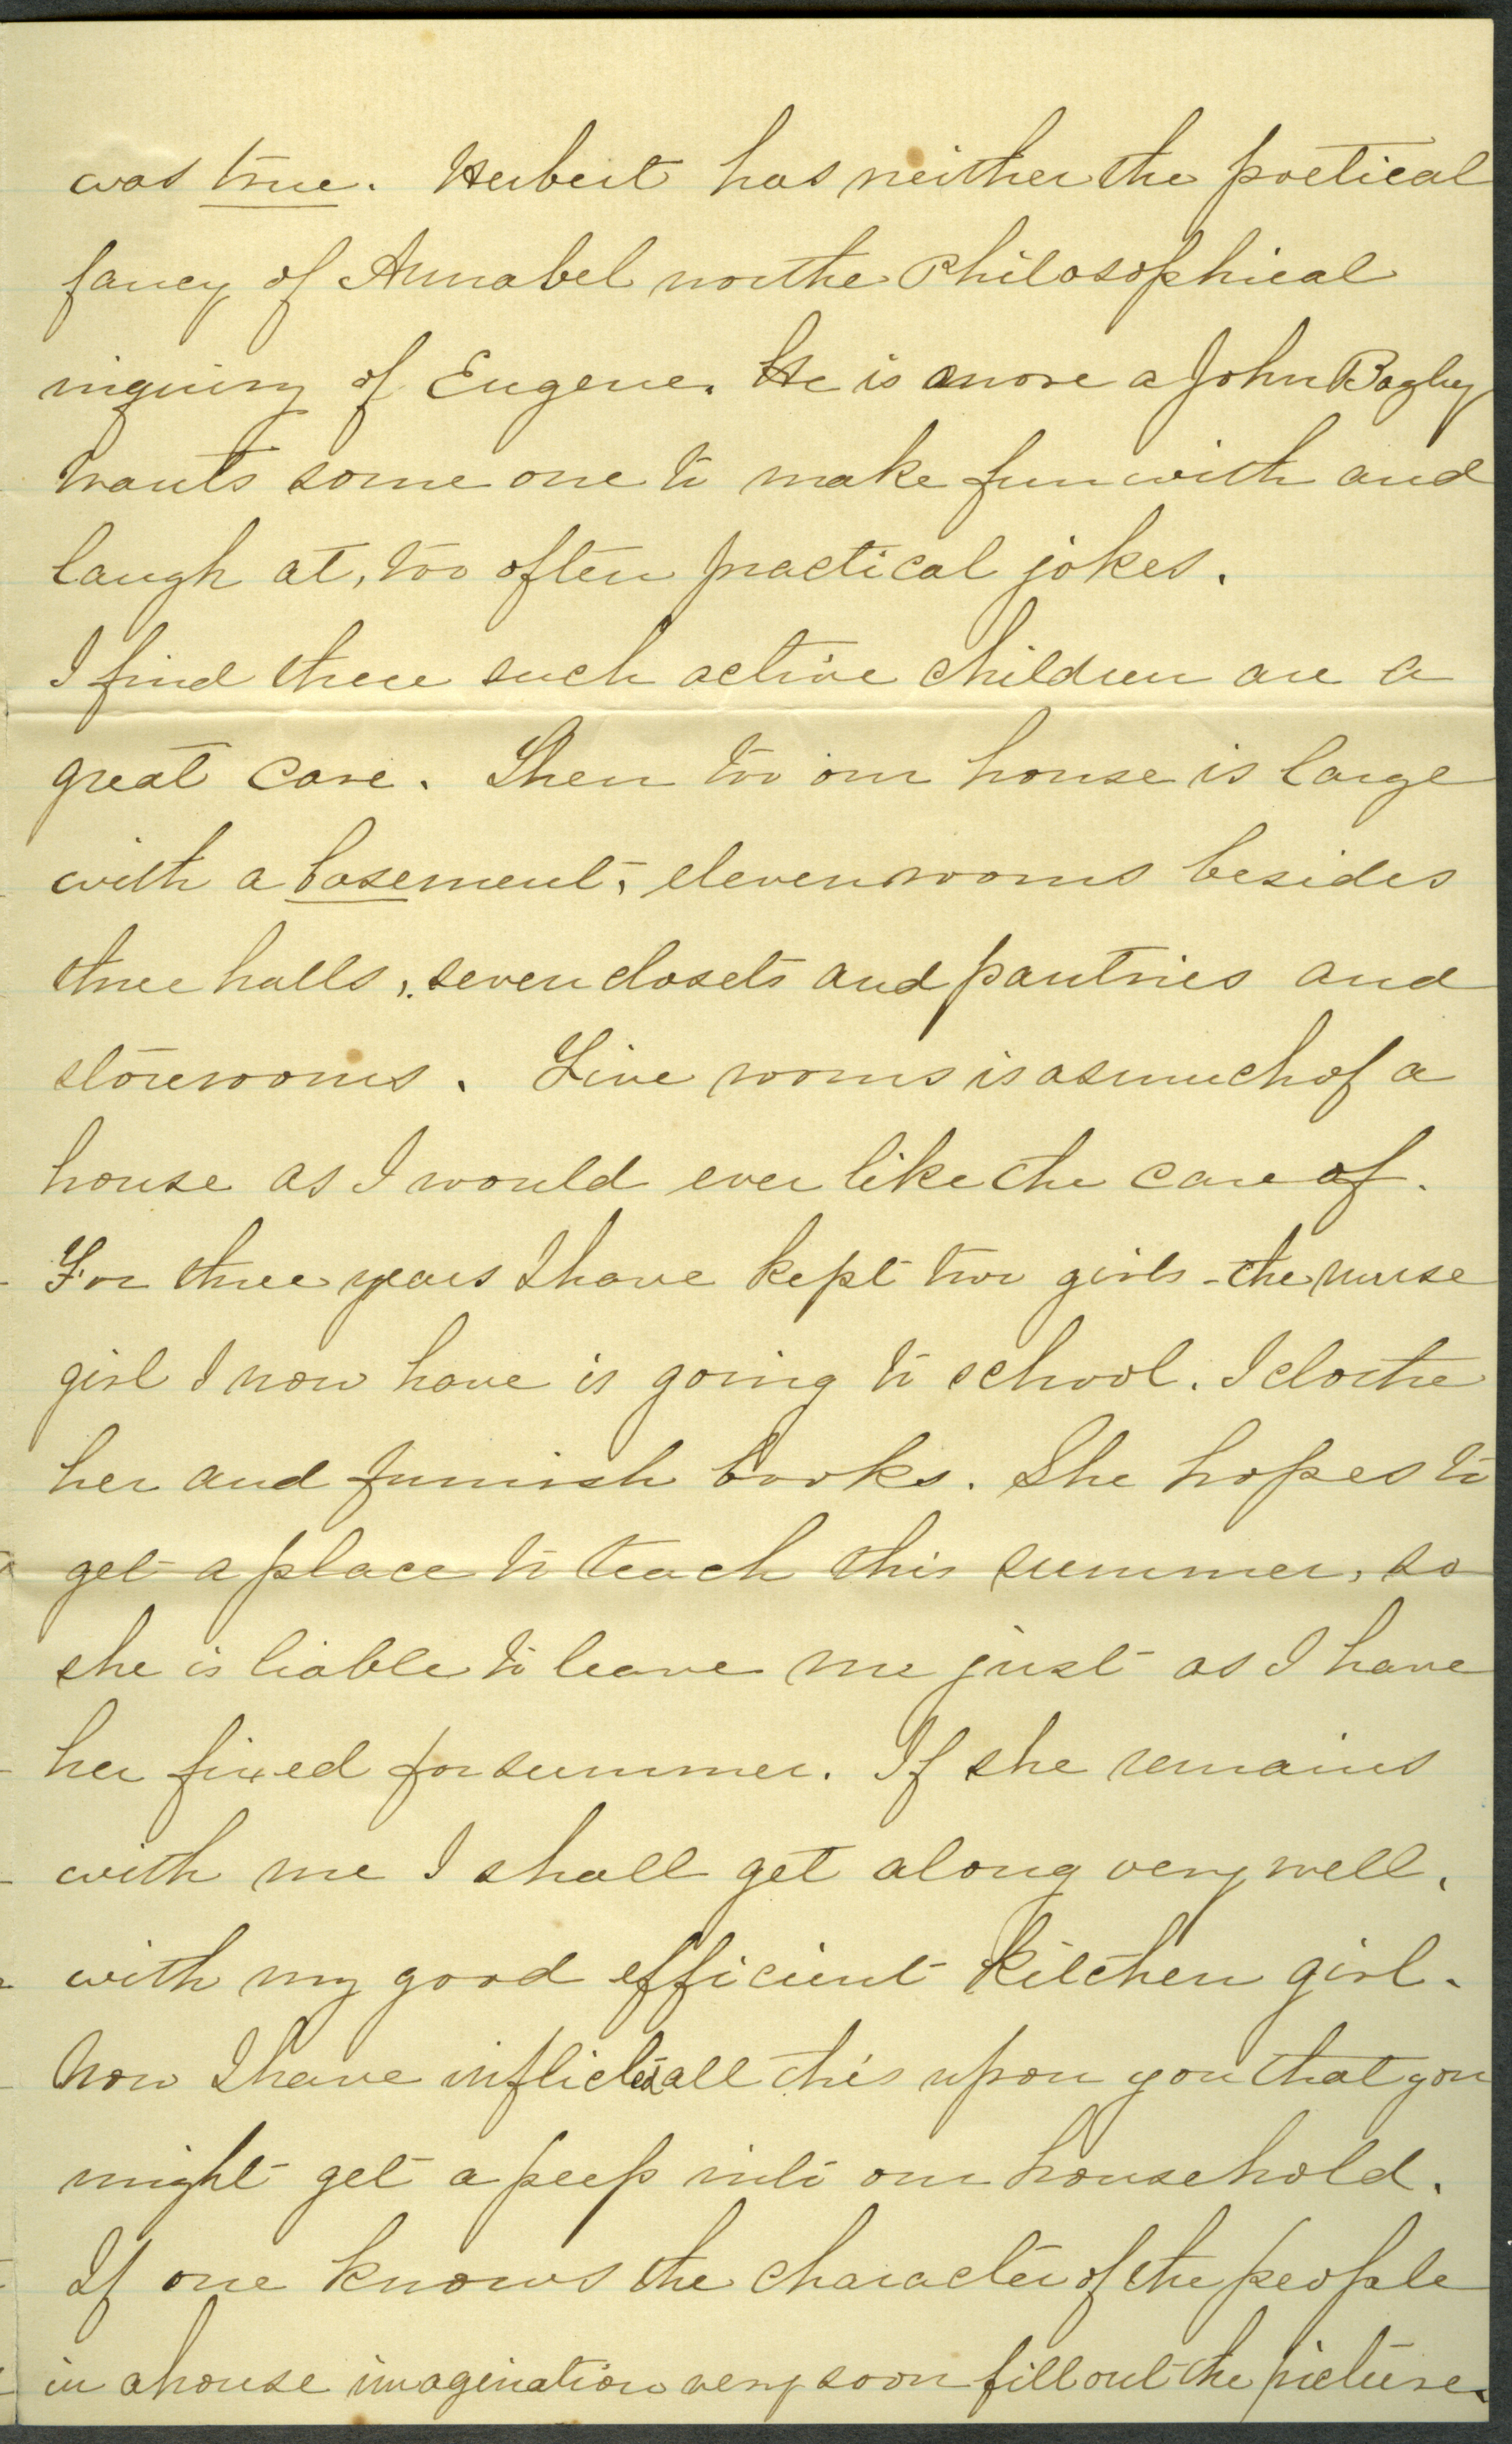 was true. Herbert has neither the poetical
fancy of Annabel nor the Philosophical
inquiry of Eugene. He is more a John Bagby
wants some one to make fun with and
laugh at, too often practical jokes.
I find three such active children are a
great care. Then too our house is large
with a basement, eleven rooms besides
three halls, seven closets and pantries and
storerooms. Five rooms is as much of a
house as I would ever like the care of.
For three years I have kept two girls - the nurse
girl I now have is going to school. I clothe
her and furnish books. She hopes to
get a place to teach this summer, so
she is liable to leave me just as I have
her fixed for summer. If she remains
with me I shall get along very well,
with my good efficient kitchen girl.
Now I have inflicted all this upon you that you
might get a peep into our household.
If one knows the character of the people
in a house imagination very soon fill out the picture.